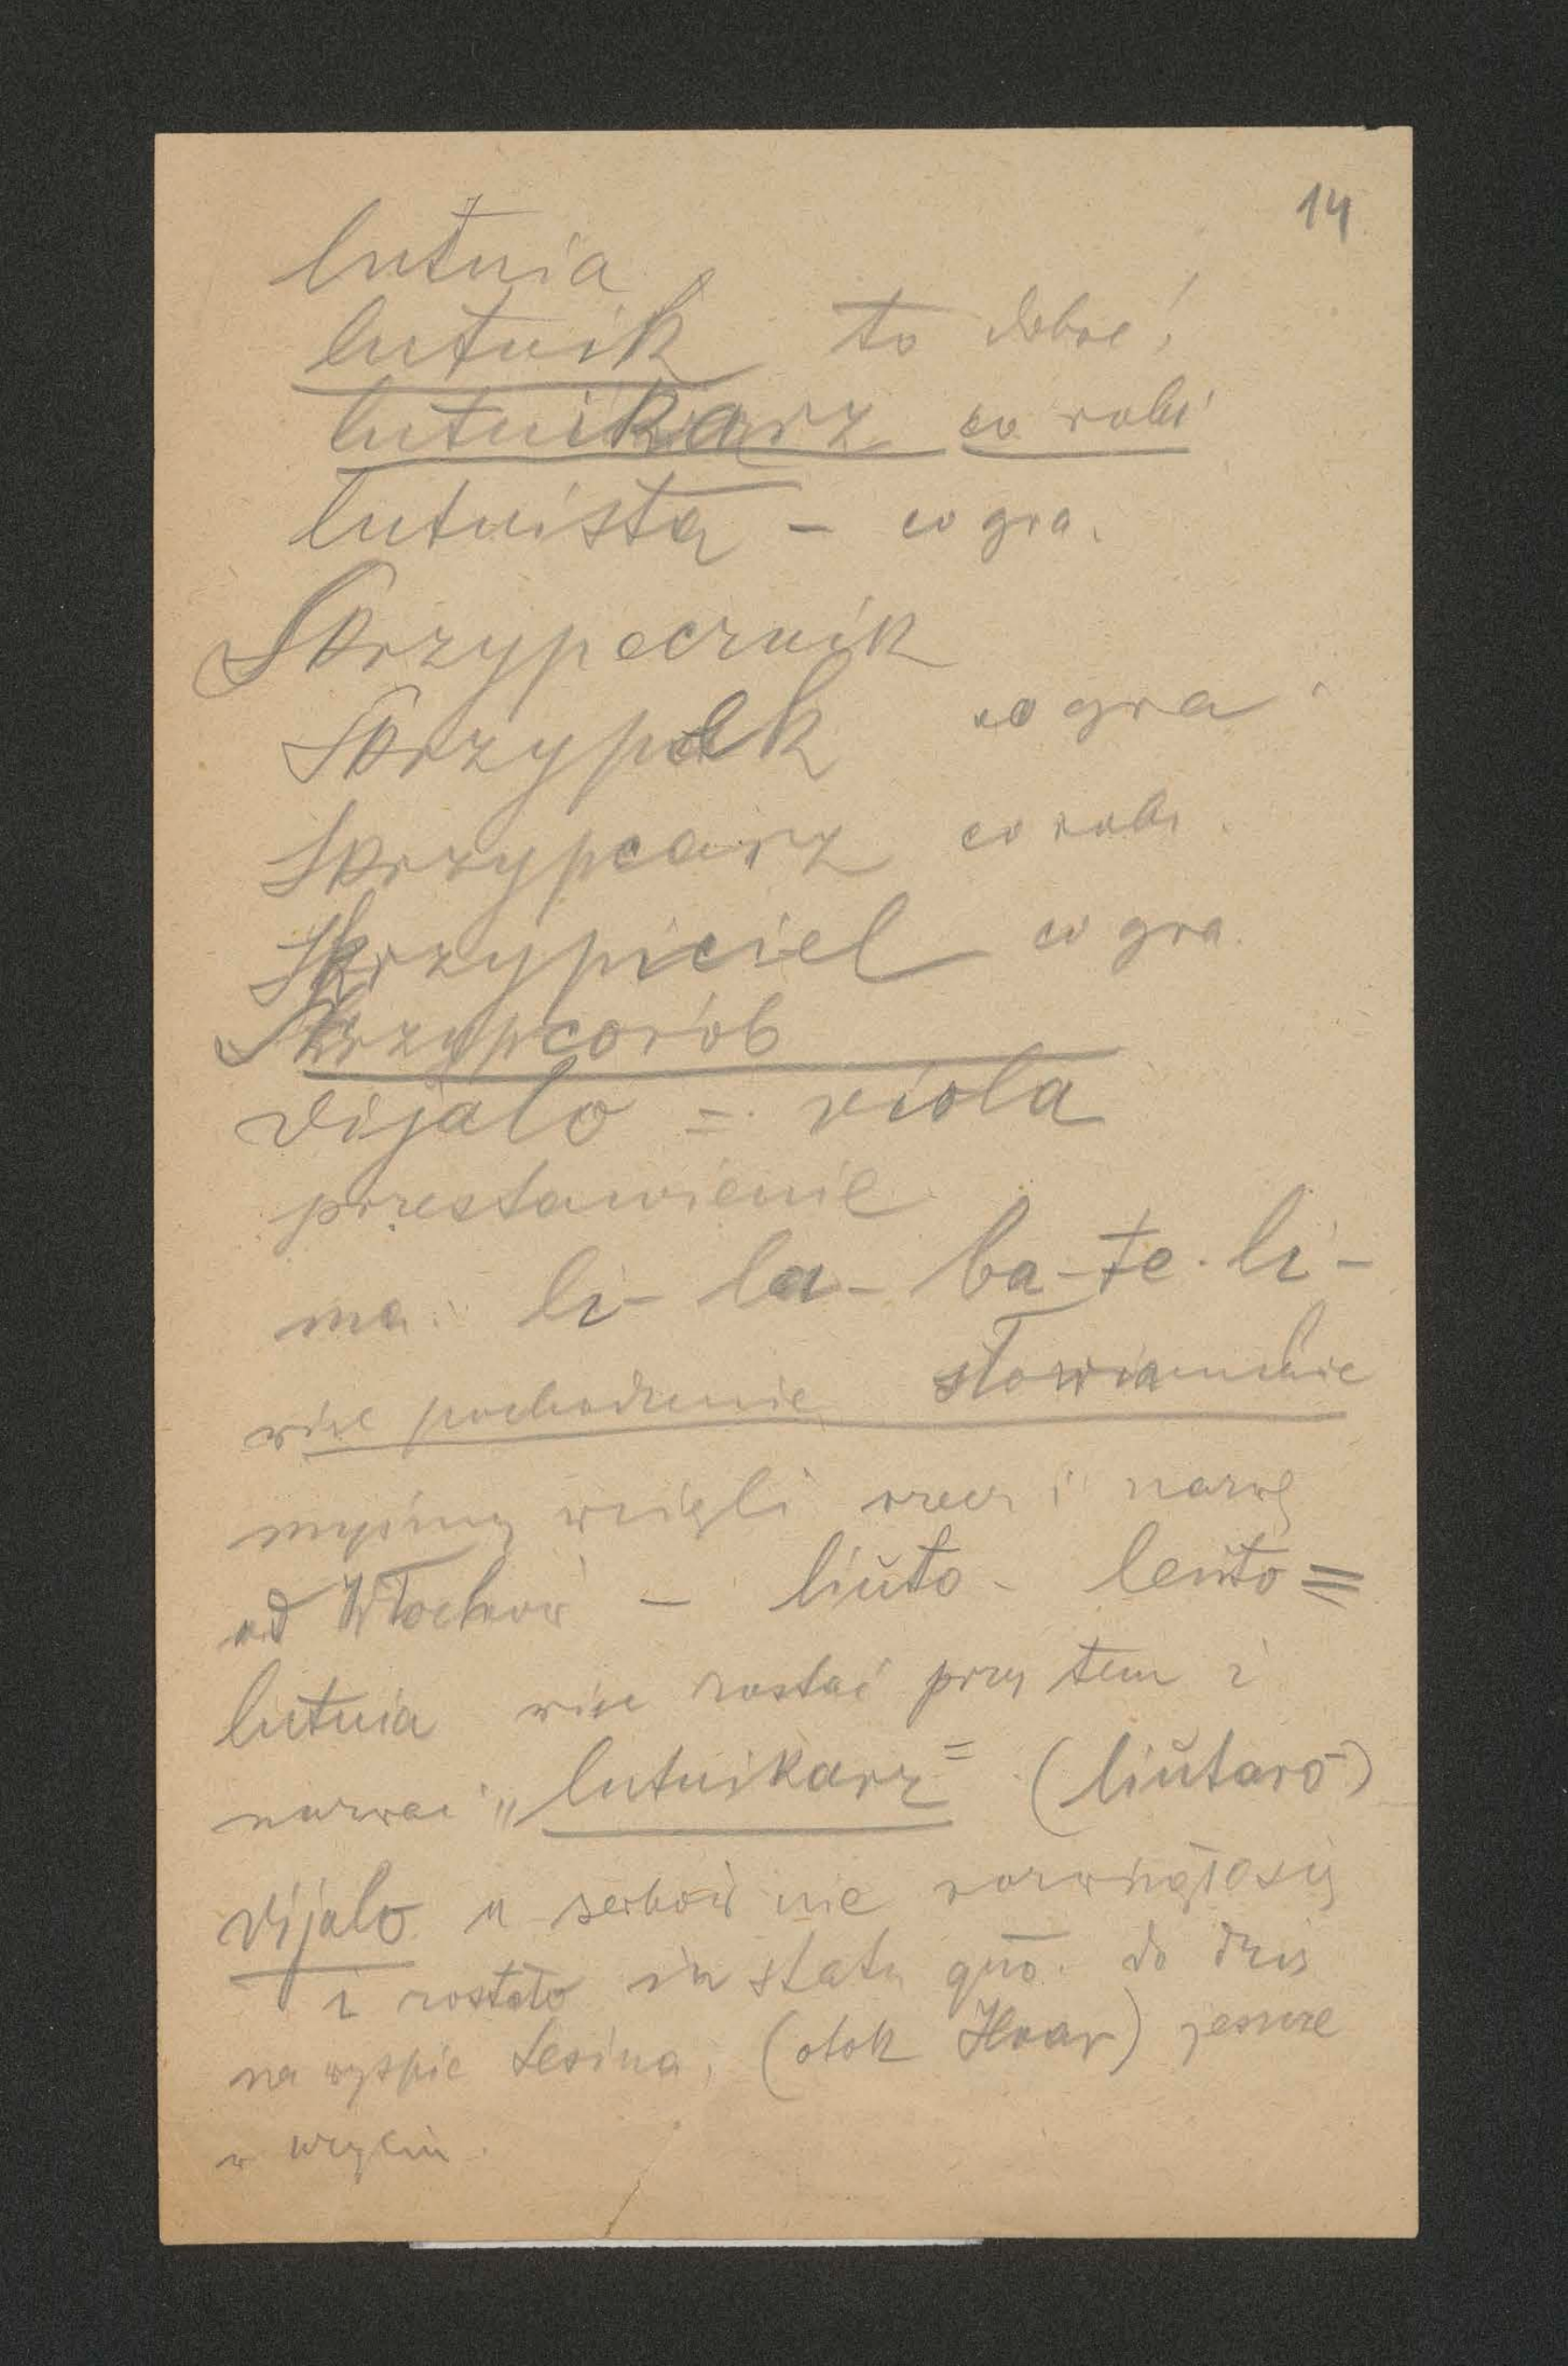 14
lutnia
lutnik to dobre!
lutnikarz co robi
lutnista – co gra.
Skrzypecznik
Skrzypek co gra
Skrzypcarz co robi.
Skrzypiciel co gra.
Skrzypcorób
vijalo = viola
przestawienie
ma: li- la- ba-te-li-
więc pochodzenie słowiańskie
myśmy wzięli rzecz i nazwę
od Włochów – liŭto - leŭto =
lutnia więc zostać przy tem i
nazwać „lutnikarz" (liŭtaro)
vijalo u serbów nie rozwinęło się
i zostało in statu quo. do dziś
na wyspie Lesina, (otok Hvar) jeszcze
w użyciu.